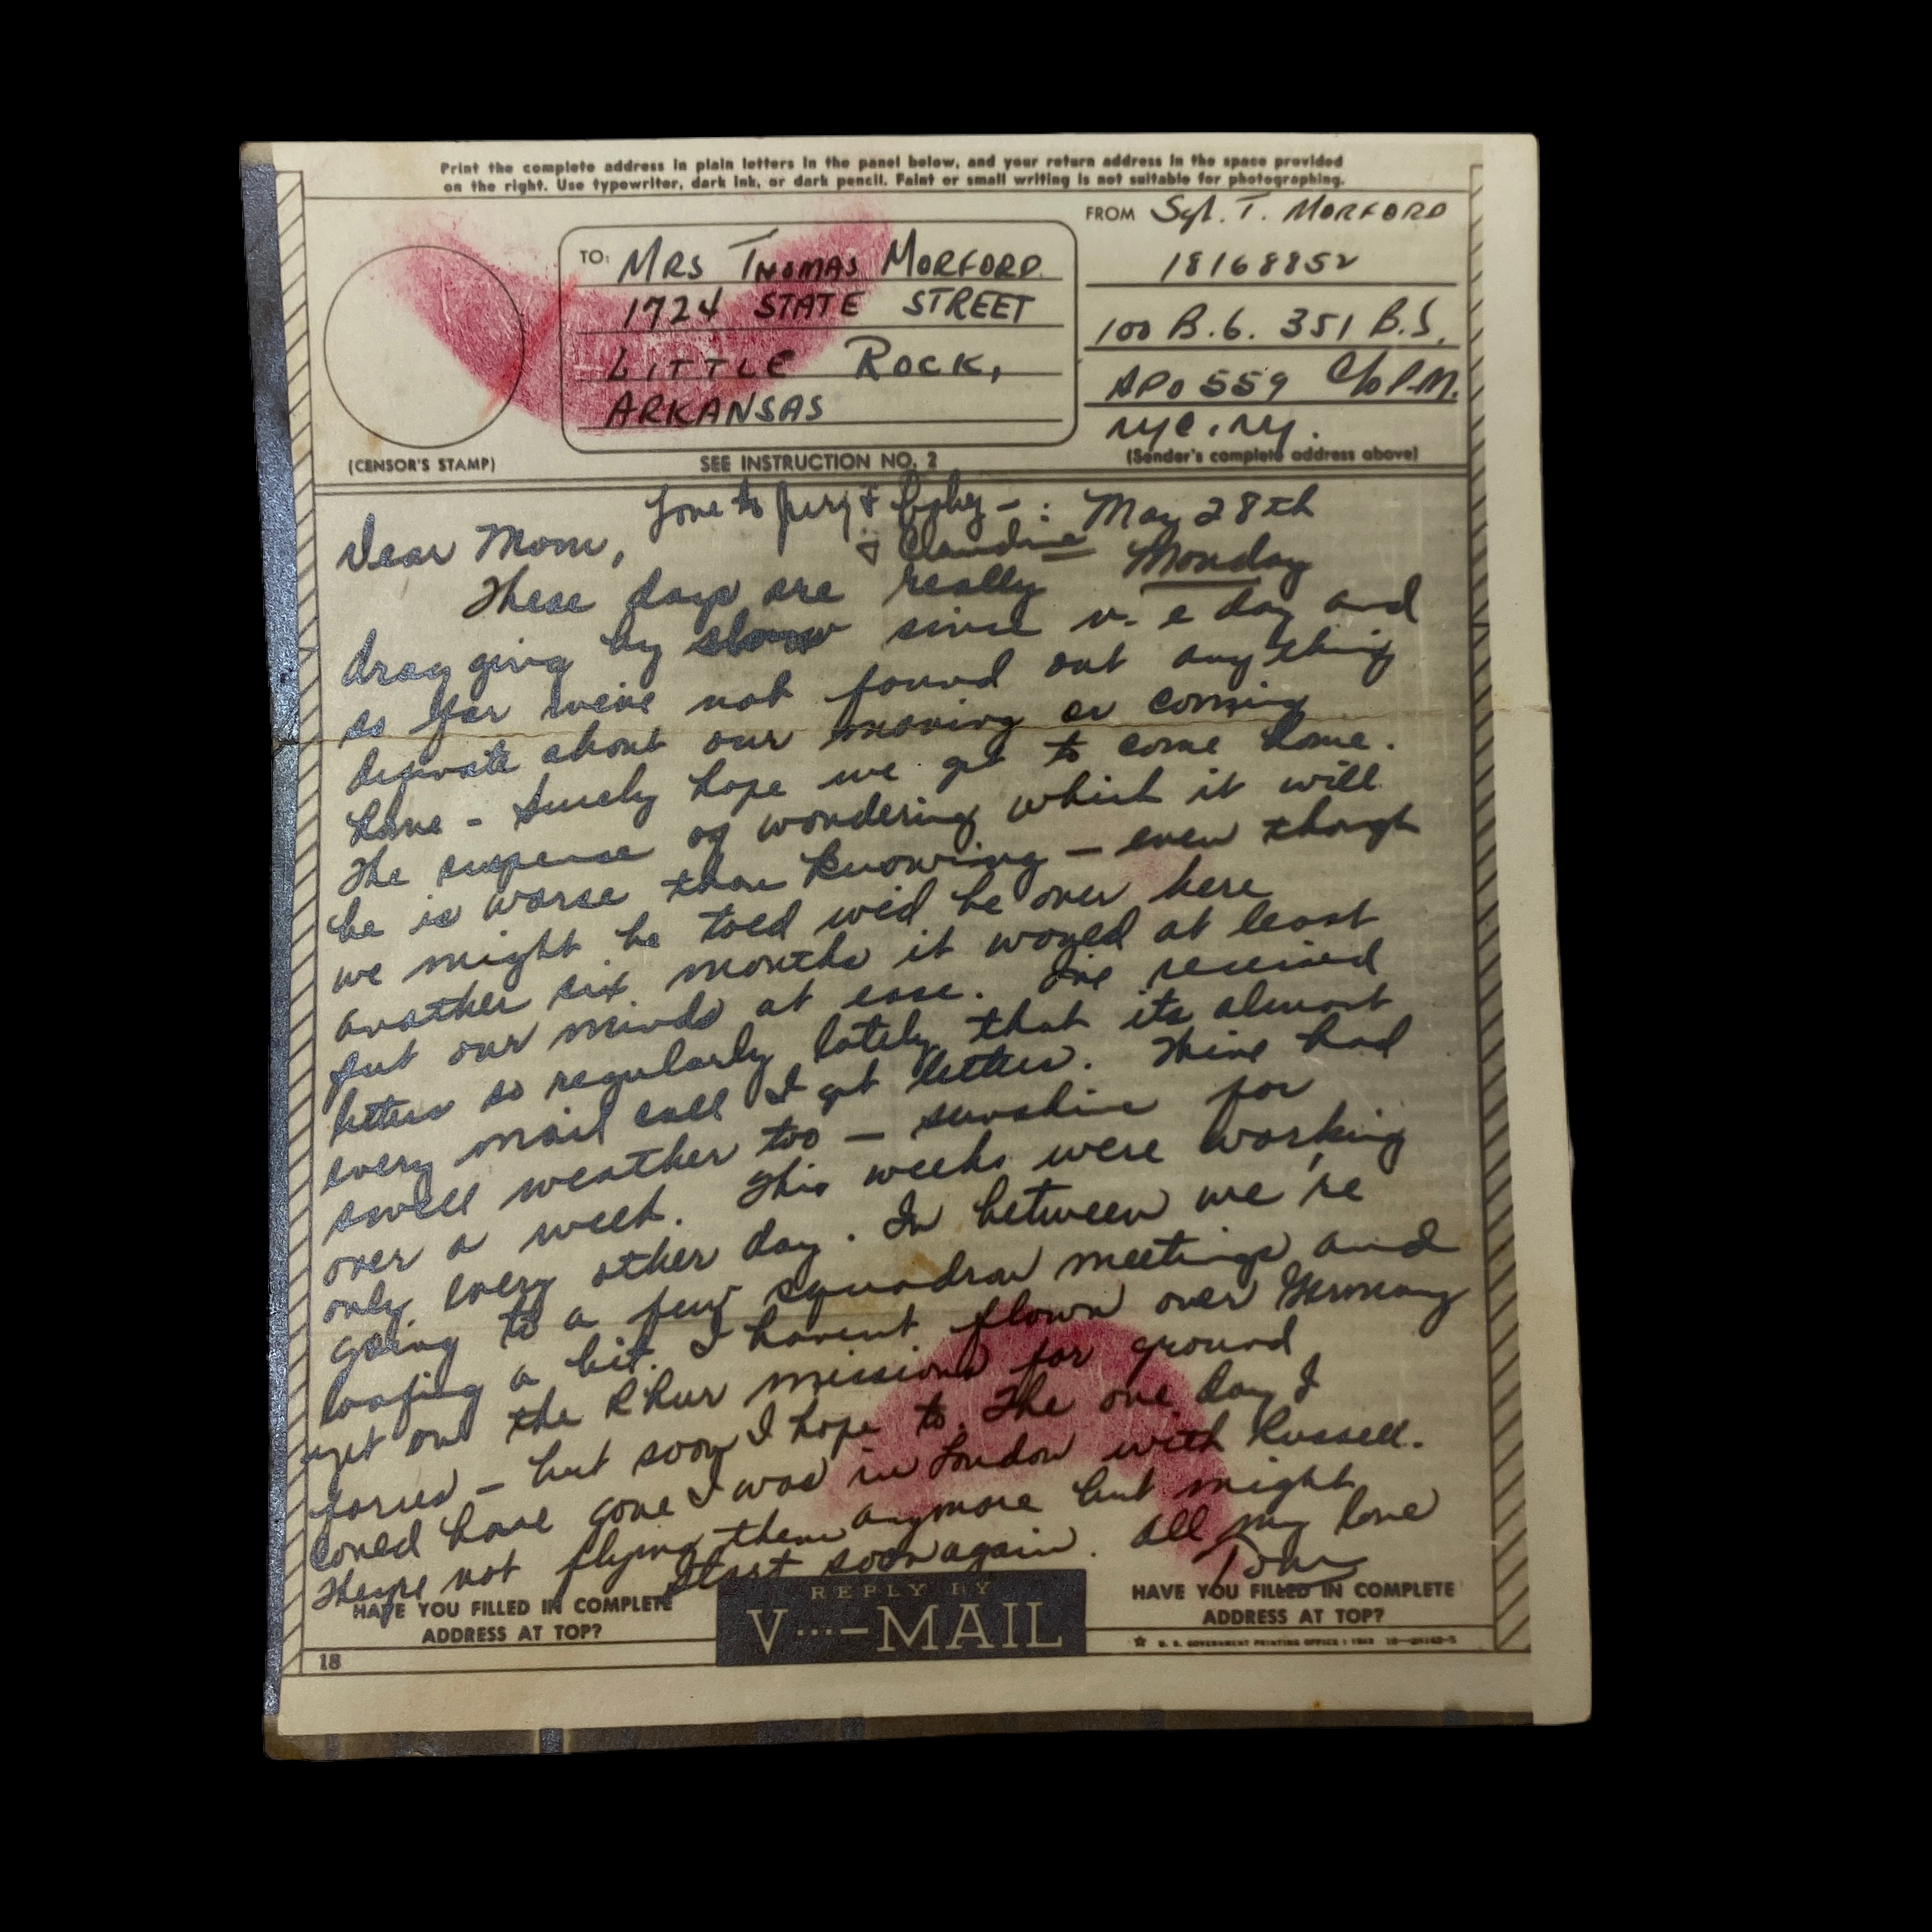 Print the complete address in plain letters in the panel below, and your return address in the space provided
on the right. Use typewriter, dark ink, or dark pencil. Faint or small writing is not suitable for photographing.
TO: MRS THOMAS MORFORD
1724 STATE STREET
LITTLE ROCK,
ARKANSAS
(CENSOR'S STAMP)
SEE INSTRUCTION NO. 2
FROM Sgt. T. MORFORD
18168852
100 B.G. 351 B.S.
APO 559 C/o P.M.
NYC, NY.
(Sender's complete address above)
Love to Jerry &
& Claudine
May 28th
Monday
Dear Mom,
These days are really
dragging by slow since v-e day and
so far weive not found out anything
about our moving or coming
home - Surely hope we get to come home.
The suspense of wondering which it will
be is worse than knowing — even though
we might be told we'd be over here
another six months it would at least
put our minds at ease. I've received
letters so regularly lately that its almost
every mail call I get letters. Weive had
swell weather too — sunshine for
over a week. This weeks were working
only every other day. In between we're
going to a few squadron meetings and
loafing a bit. I havent flown over Germany
yet on the Rhur missions for ground
forces — but soon I hope to. The one day I
could have gone I was in London with Russell.
Theyre not flying them anymore but might
start soon again. All my love
Tom
HAVE YOU FILLED IN COMPLETE
ADDRESS AT TOP?
REPLY BY
V···—MAIL
HAVE YOU FILLED IN COMPLETE
ADDRESS AT TOP?
U. S. GOVERNMENT PRINTING OFFICE : 1943
18